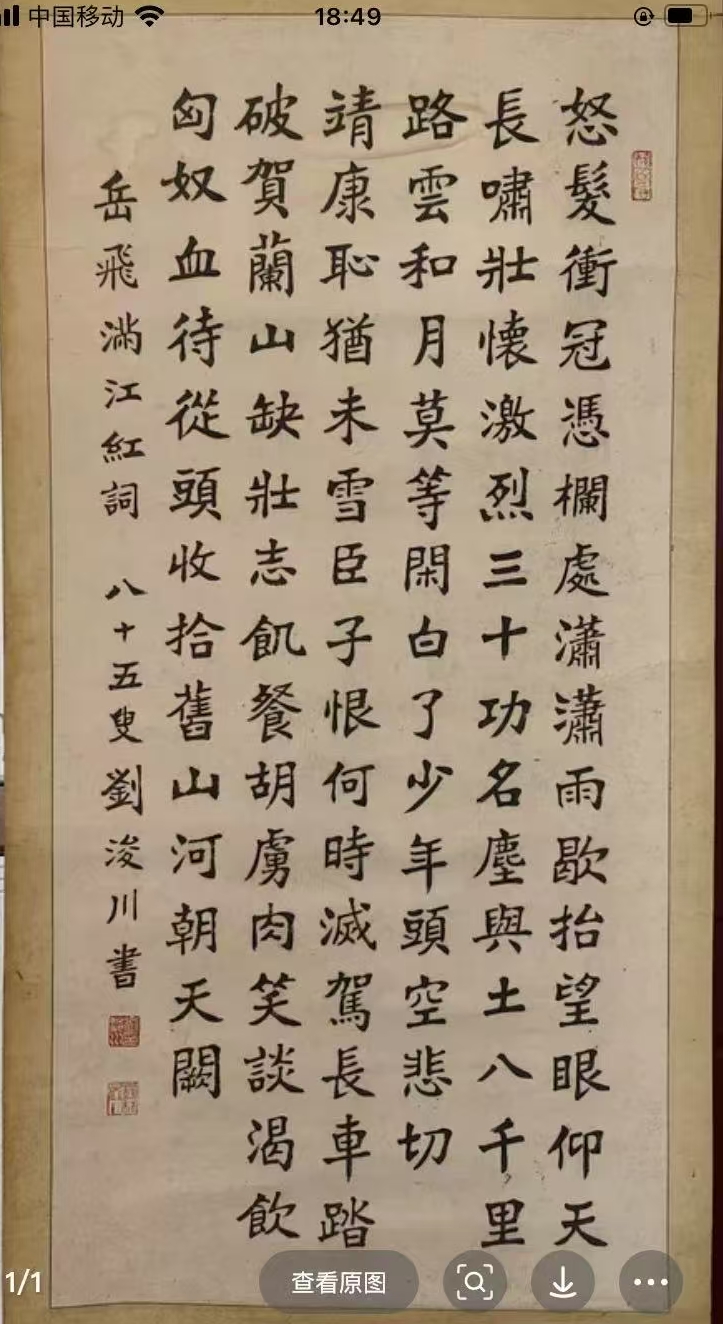 中国移动 18:49
怒髮衝冠憑欄處瀟瀟雨歇抬望眼仰天
長嘯壯懷激烈三十功名塵與土八千里
路雲和月莫等閑白了少年頭空悲切
靖康恥猶未雪臣子恨何時滅駕長車踏
破賀蘭山缺壯志飢餐胡虜肉笑談渴飲
匈奴血待從頭收拾舊山河朝天闕
岳飛滿江紅詞 八十五叟劉浚川書
1/1
查看原图